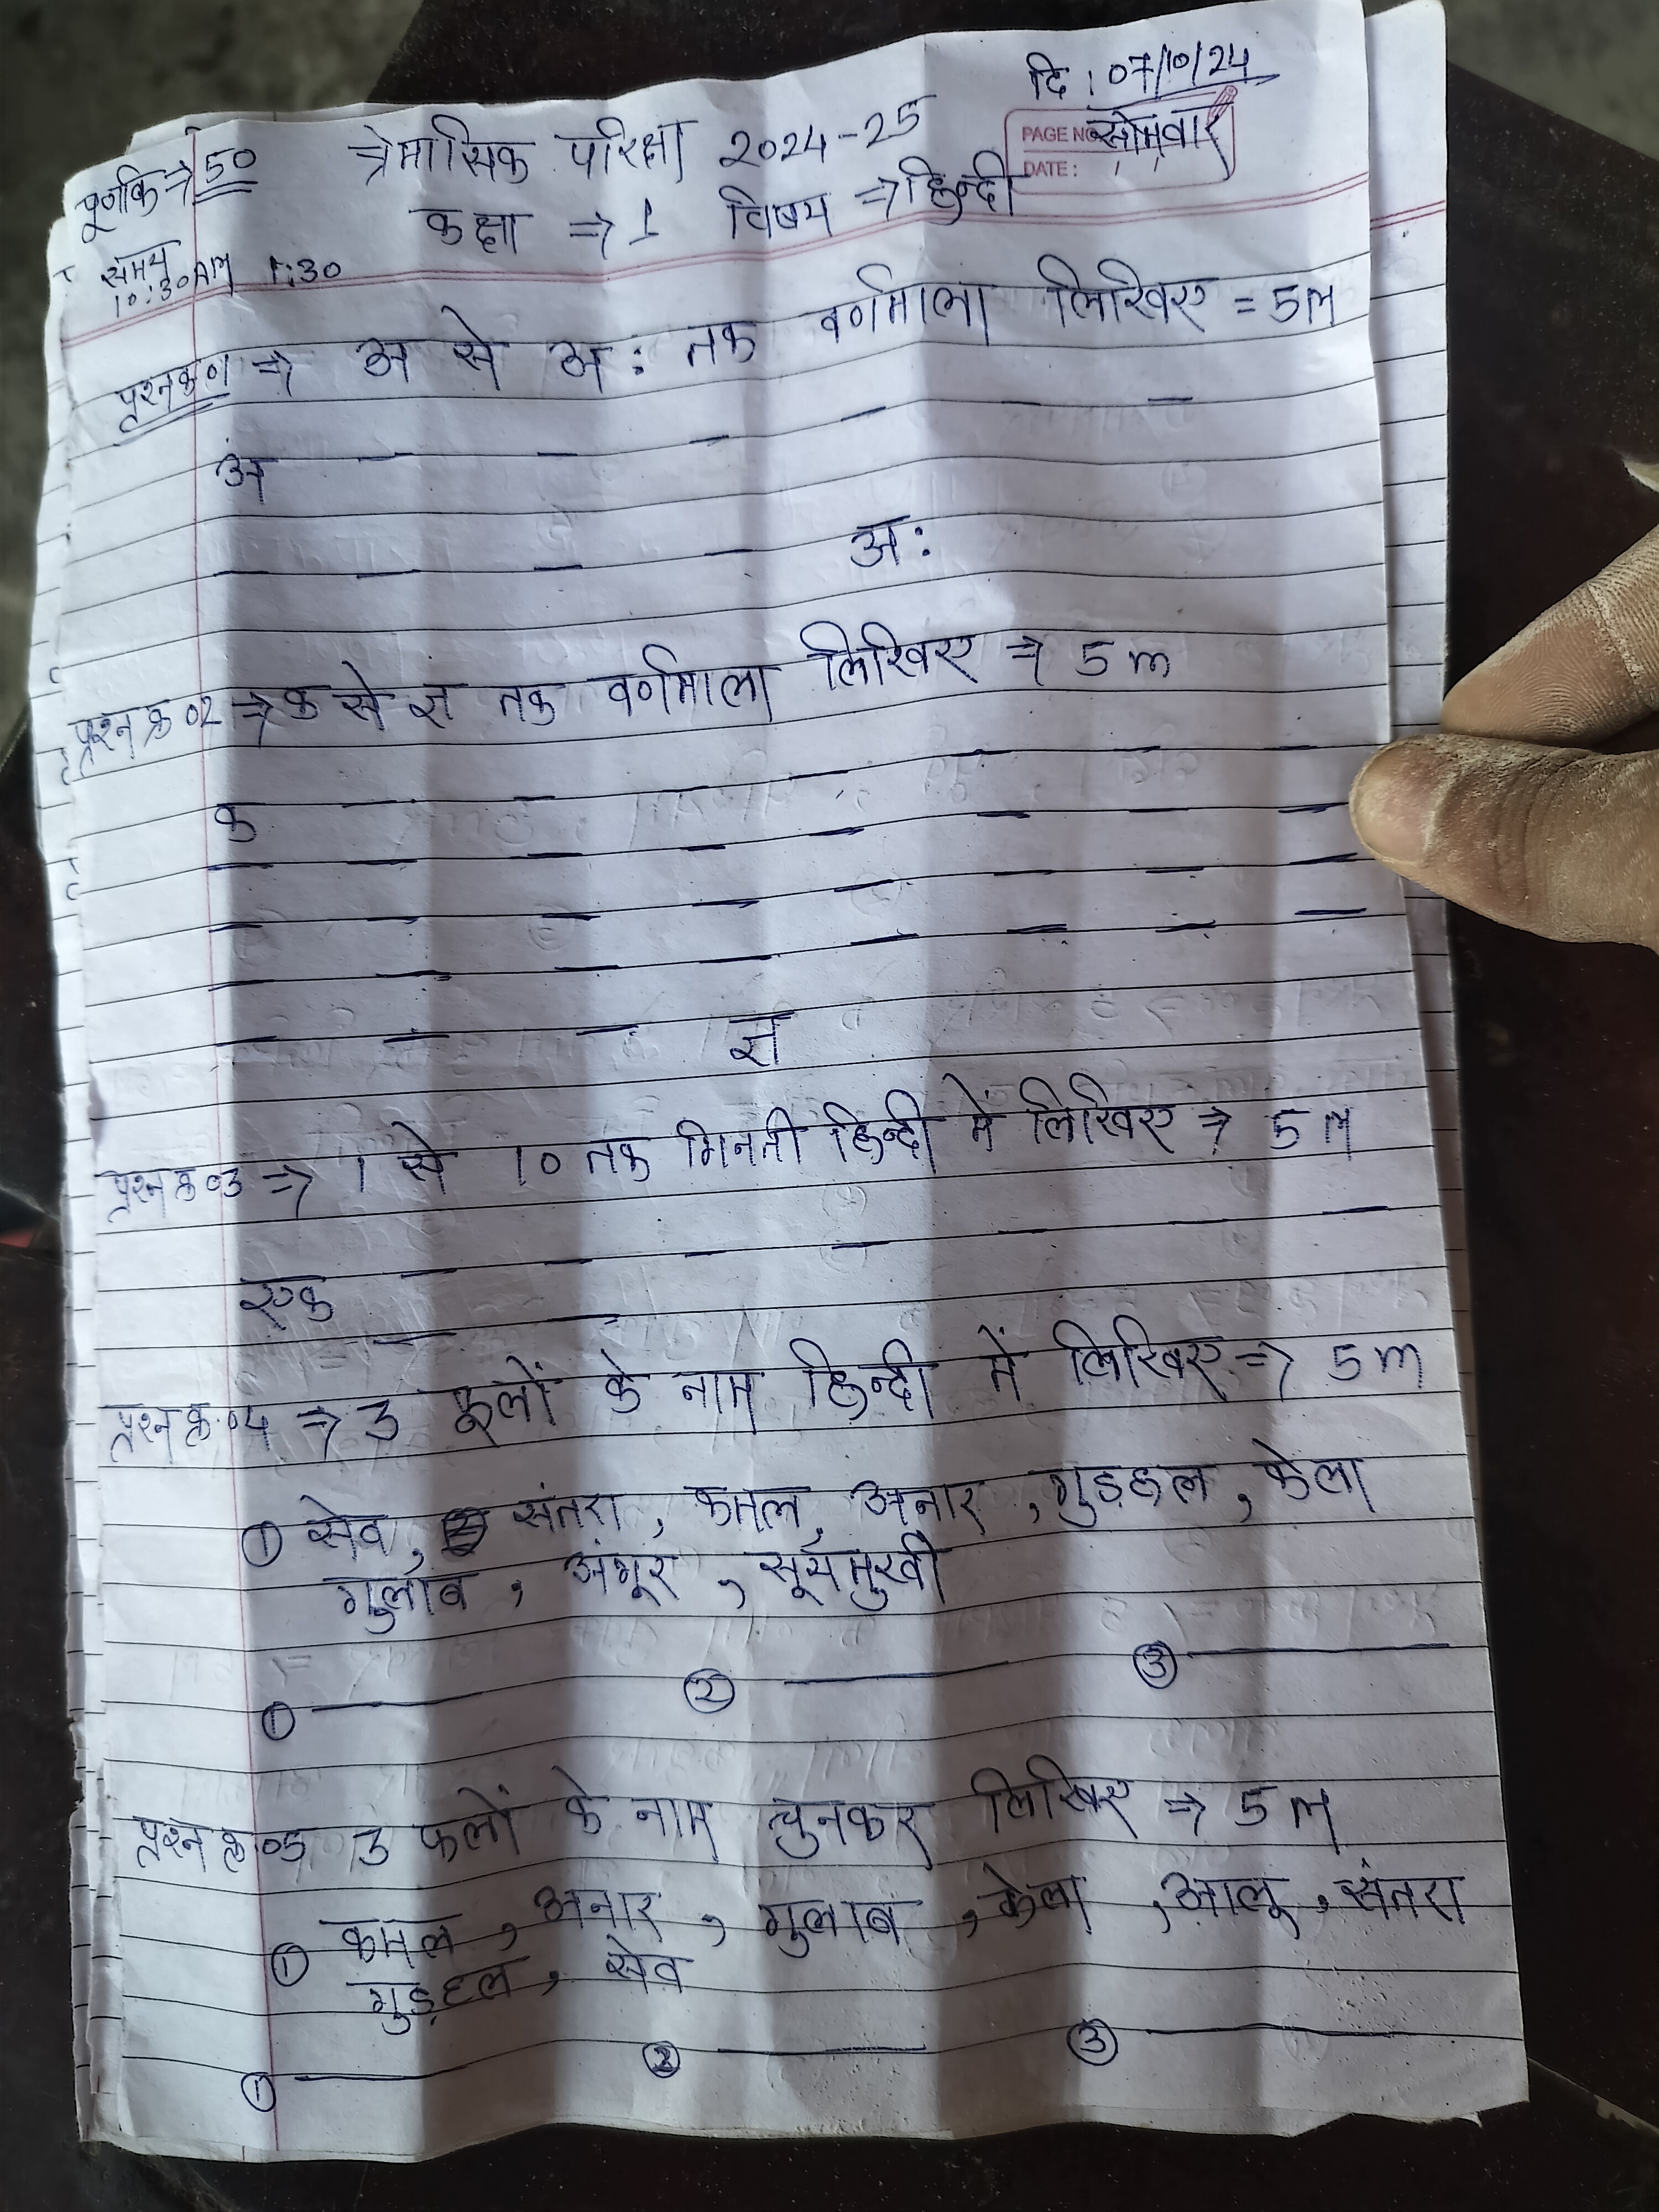 दि : 07/10/24
PAGE NO. सोमवार
DATE : / /
पूर्णांक → 50 त्रेमासिक परिक्षा 2024-25
कक्षा ⇒ 1 विषय ⇒ हिन्दी
समय
10:30AM 1:30
प्रश्न क्र 01 ⇒ अ से अः तक वर्णमाला लिखिए = 5M
अ — — — — — —
— — — — अः
प्रश्न क्र 02 ⇒ क से ज्ञ तक वर्णमाला लिखिए ⇒ 5 m
क — — — — — —
— — — — — — — —
— — — — — — — —
— — — — — — — —
— — — ज्ञ
प्रश्न क्र 03 ⇒ 1 से 10 तक गिनती हिन्दी में लिखिए ⇒ 5 M
एक — — — — — — —
— —
प्रश्न क्र 04 ⇒ 3 फूलों के नाम हिन्दी में लिखिए ⇒ 5 m
① सेव, संतरा, कमल, अनार, गुड़हल, केला
गुलाब, अंगूर, सूर्यमुखी
① — ② — ③ —
प्रश्न क्र 05 3 फलों के नाम चुनकर लिखिए ⇒ 5 M
① कमल, अनार, गुलाब, केला, आलू, संतरा
गुड़हल, सेव
① — ② — ③ —